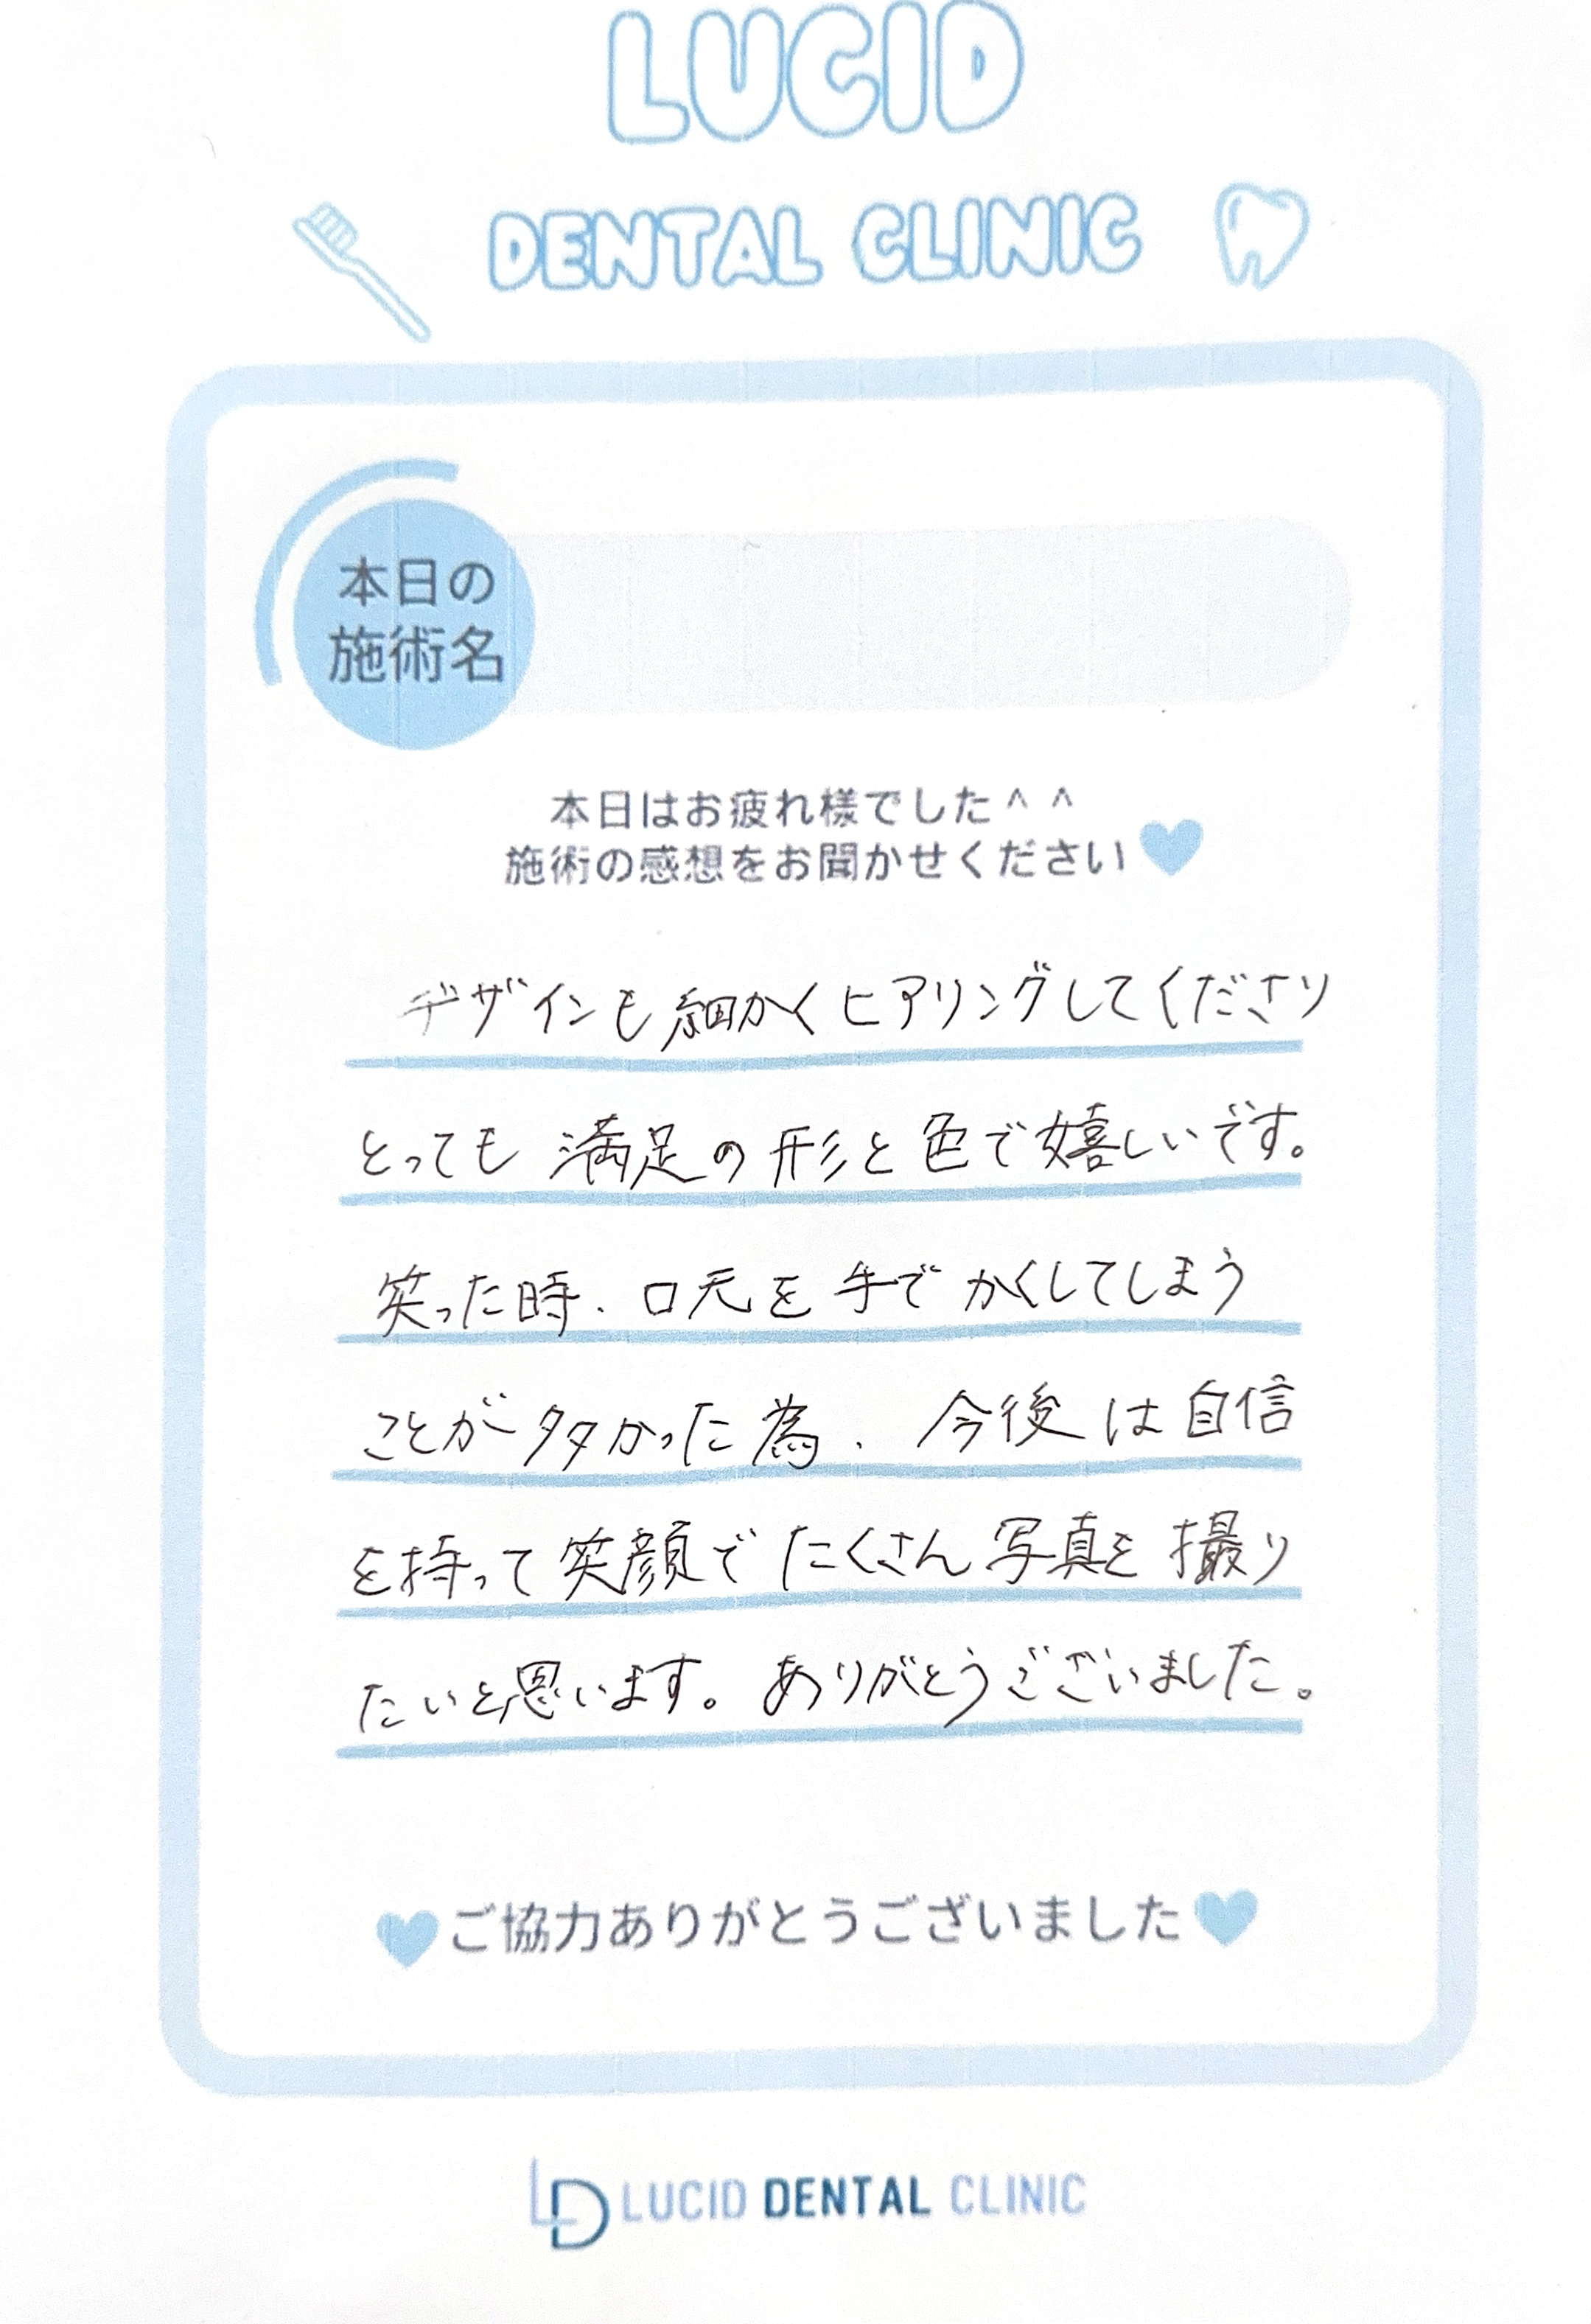 LUCID
DENTAL CLINIC
本日の
施術名
本日はお疲れ様でした^ ^
施術の感想をお聞かせください
デザインも細かくヒアリングしてくださり
とっても満足の形と色で嬉しいです。
笑った時、口元を手でかくしてしまう
ことが多かった為、今後は自信
を持って笑顔でたくさん写真を撮り
たいと思います。ありがとうございました。
ご協力ありがとうございました
LD LUCID DENTAL CLINIC